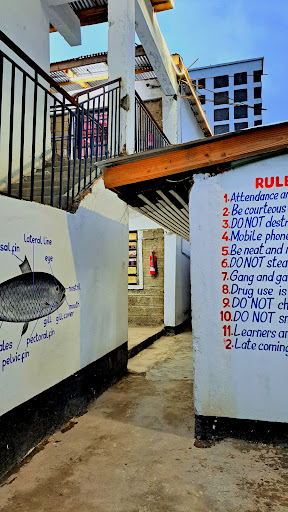 lateral line
eye
nostril
mouth
gill cover
gill
pectoral fin
pelvic fin
RULE
1. Attendance an
2. Be courteous
3. DO NOT destr
4. Mobile phone
5. Be neat and
6. DO NOT stea
7. Gang and ga
8. Drug use is
9. DO NOT ch
10. DO NOT sm
11. Learners ar
2. Late coming